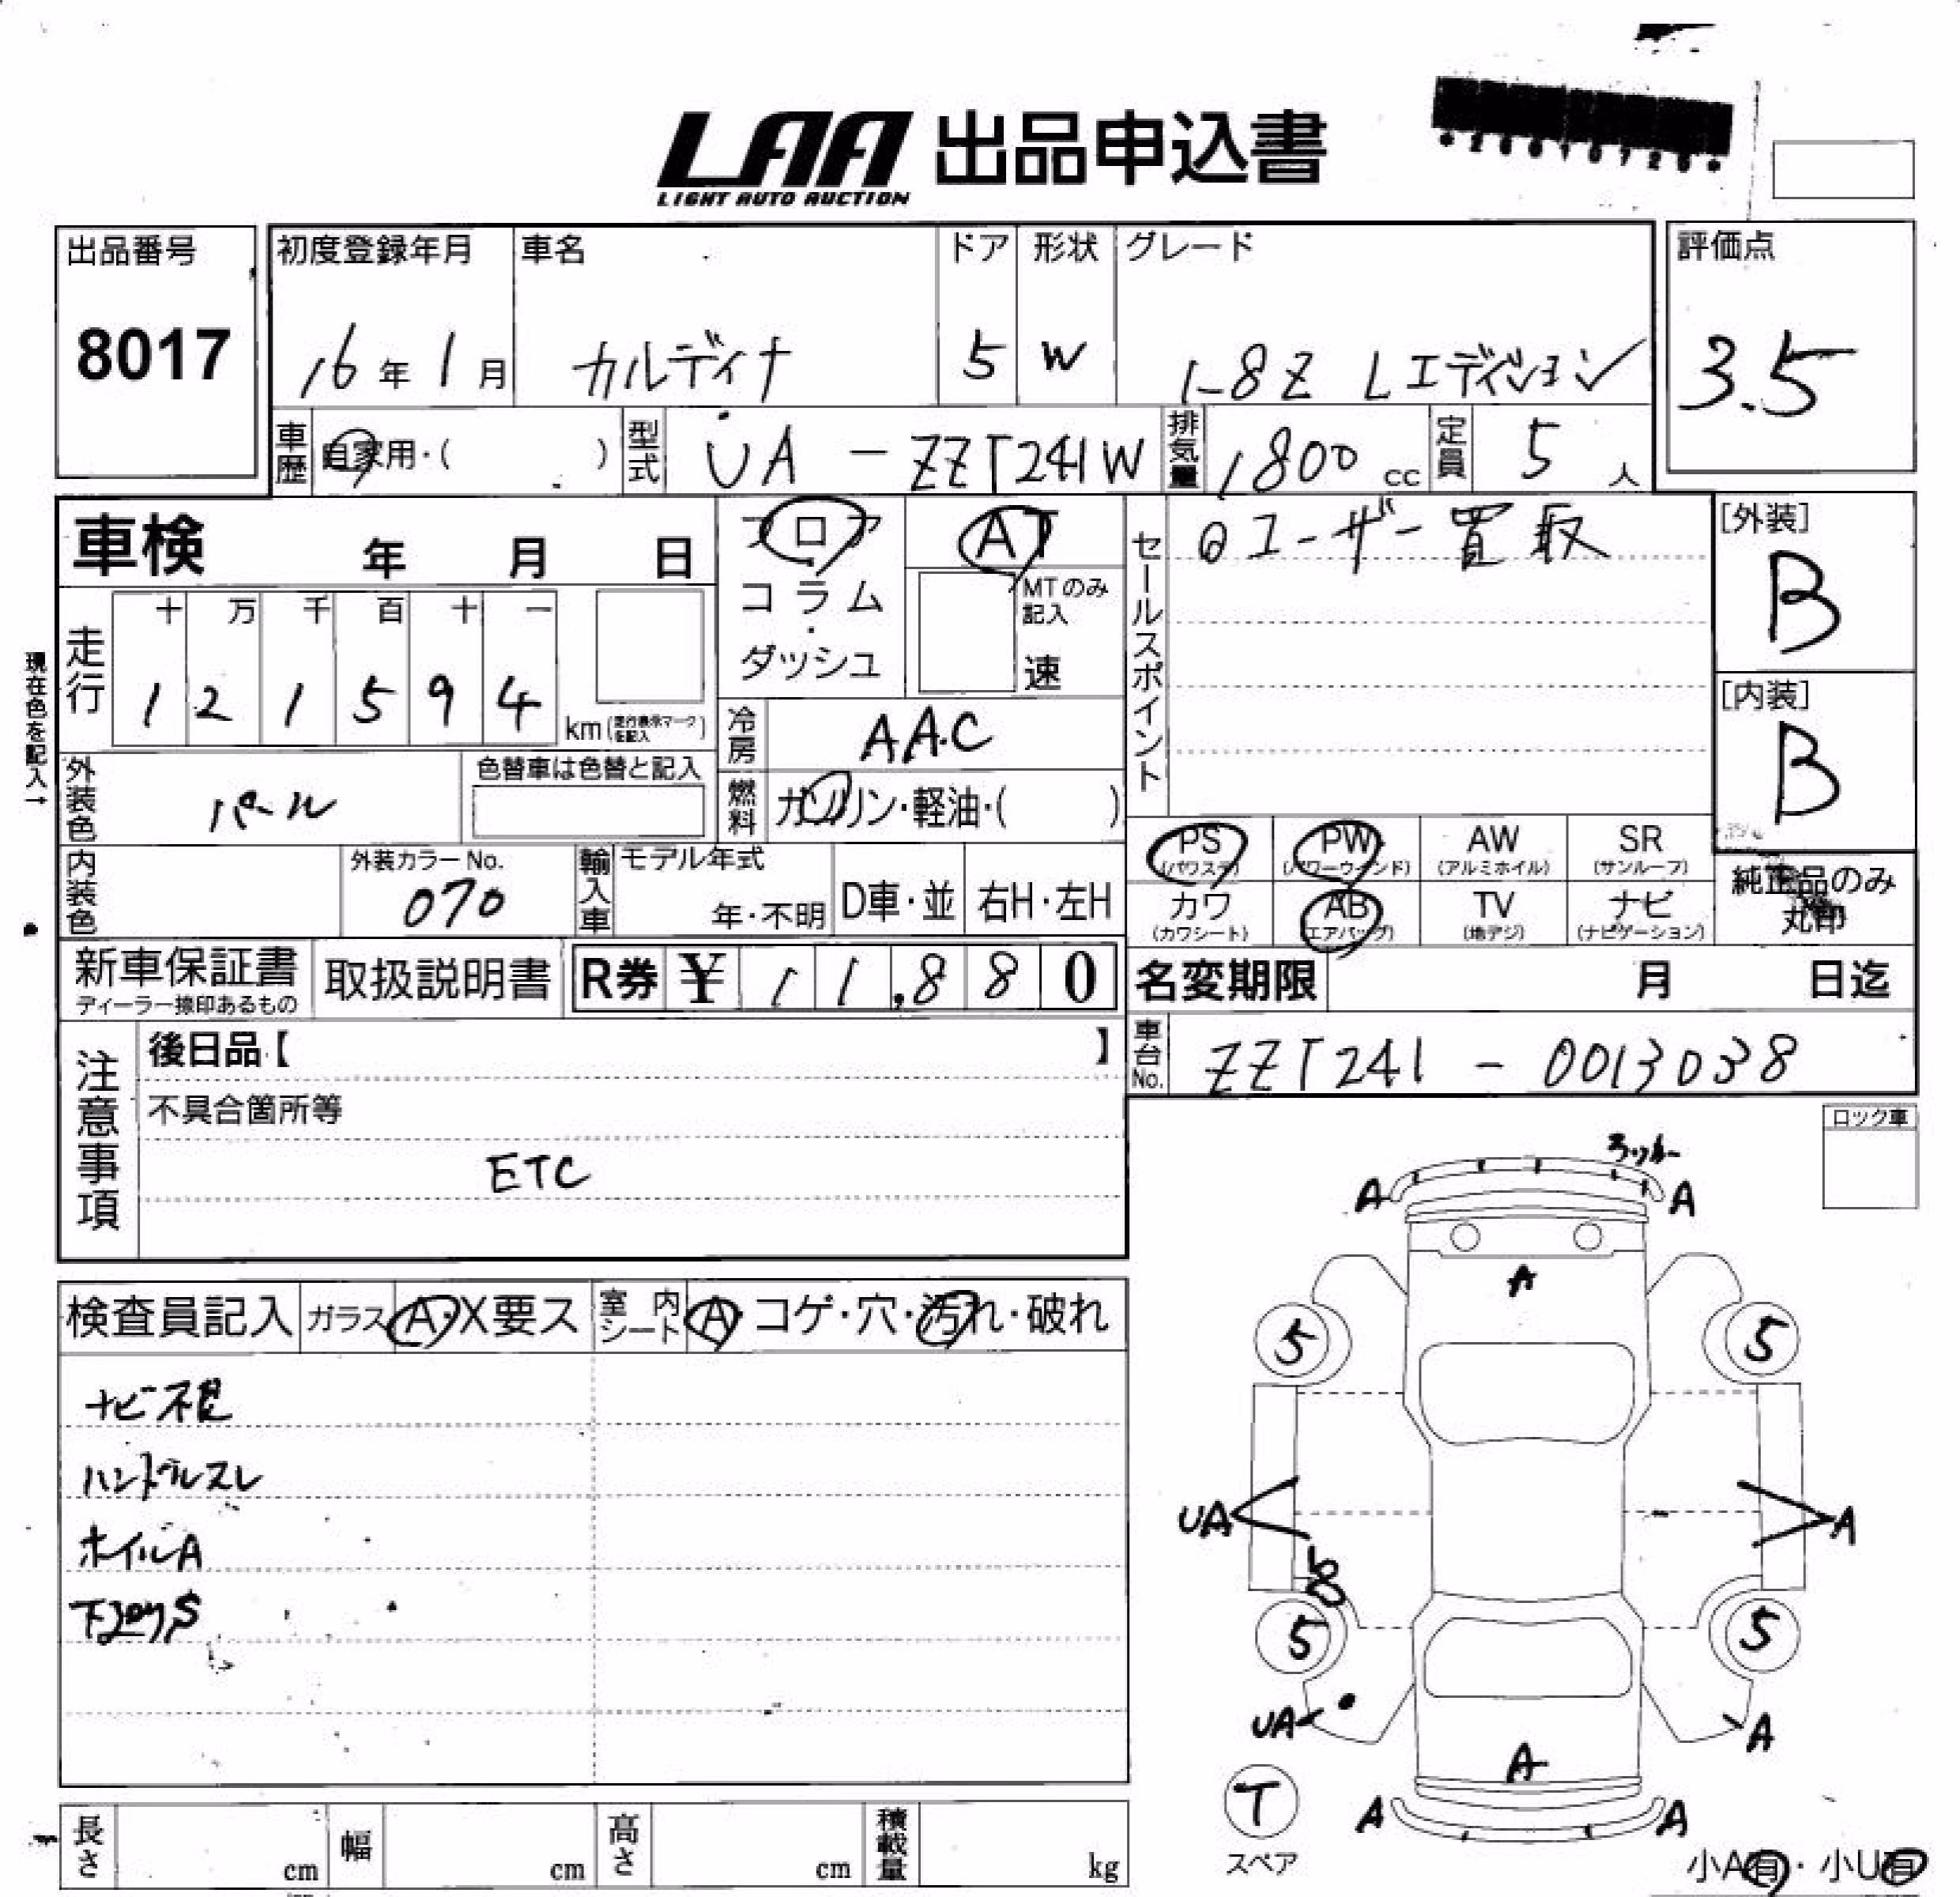 LAA 出品申込書
LIGHT AUTO AUCTION
出品番号
8017
初度登録年月
16年1月
車名
カルディナ
ドア
5
形状
W
グレード
1.8Z Lエディション
評価点
3.5
車歴
自家用・( )
型式
UA - ZZT241W
排気量
1800 cc
定員
5 人
車検 年 月 日
フロア
コラム
・
ダッシュ
AT
MTのみ
記入
速
セールスポイント
◎ユーザー買取
[外装]
B
[内装]
B
現在色を記入→
走行
十 万 千 百 十 一
1 2 1 5 9 4
km (走行表示マークを記入)
冷房
AAC
燃料
ガソリン・軽油・( )
外装色
パール
色替車は色替と記入
内装色
外装カラーNo.
070
輸入車
モデル年式
年・不明
D車・並
右H・左H
PS
(パワステ)
PW
(パワーウインド)
AW
(アルミホイル)
SR
(サンルーフ)
カワ
(カワシート)
AB
(エアバッグ)
TV
(地デジ)
ナビ
(ナビゲーション)
純正品のみ
丸印
新車保証書
ディーラー捺印あるもの
取扱説明書
R券 ¥ 11,880
名変期限 月 日迄
車台No.
ZZT241 - 0013038
注意事項
後日品【 】
不具合箇所等
ETC
ロック車
検査員記入
ガラス
A・X要ス
室内
シート
A・コゲ・穴・汚れ・破れ
ハンドルスレ
ホイルA
A A
A
5 5
UA A
5 5
UA A
A
T
スペア
A A
小A有・小U有
長さ cm
幅 cm
高さ cm
積載量 kg